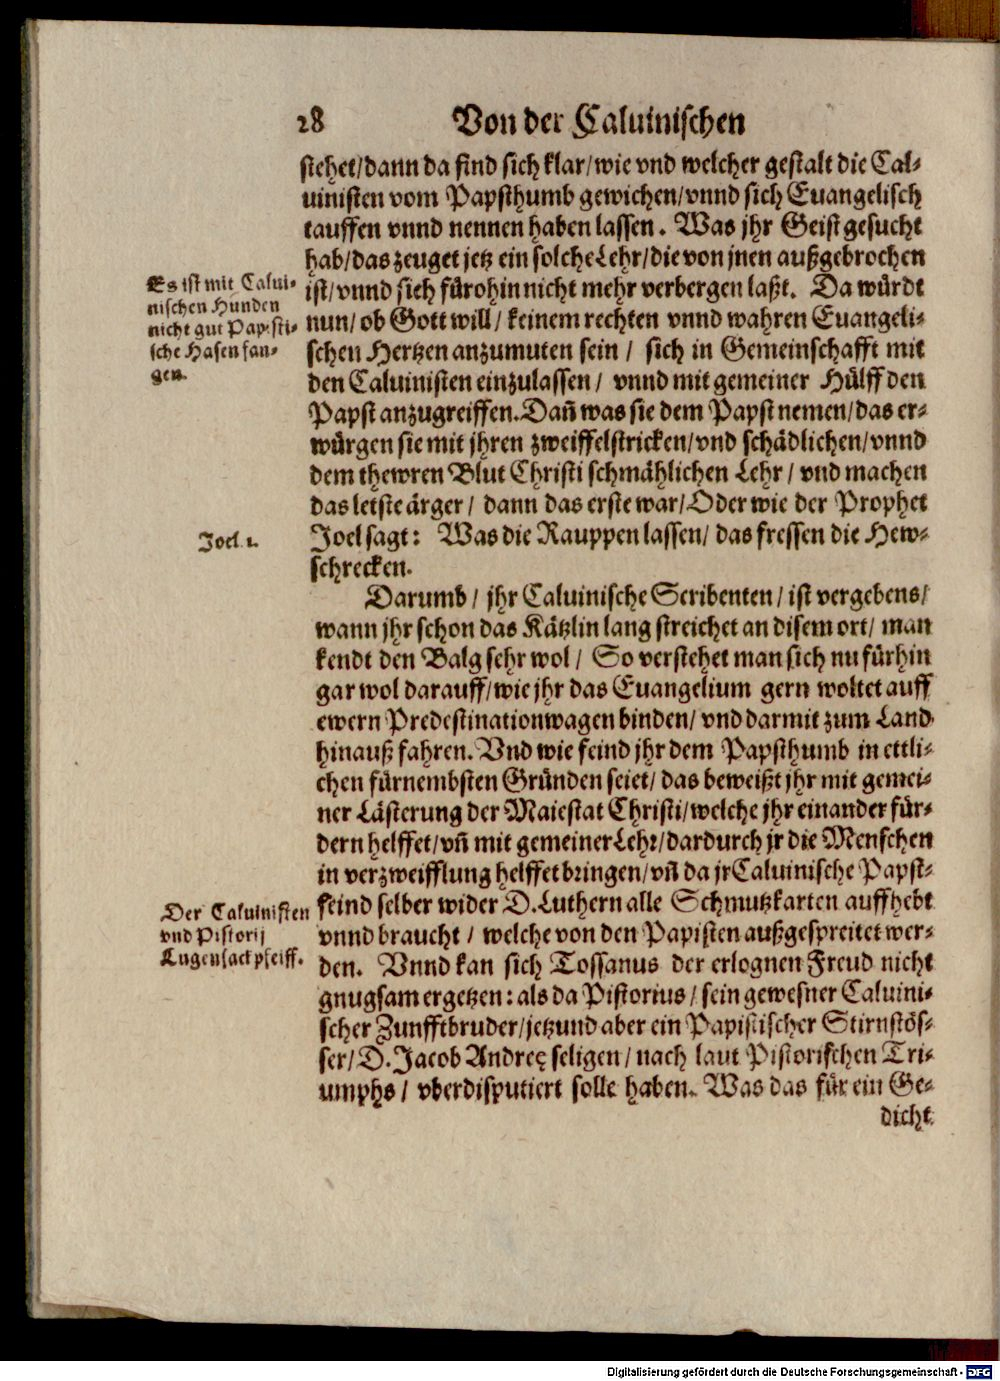 28 Von der Caluinischen
stehet/dann da find sich klar/wie vnd welcher gestalt die Cal-
uinisten vom Papsthumb gewichen/vnnd sich Euangelisch
tauffen vnnd nennen haben lassen. Was jhr Geist gesucht
hab/das zeuget jetz ein solche Lehr/die von jnen außgebrochen
ist/vnnd sich fürohin nicht mehr verbergen laßt. Da würdt
nun/ob Gott will/keinem rechten vnnd wahren Euangeli-
schen Hertzen anzumuten sein/ sich in Gemeinschafft mit
den Caluinisten einzulassen/ vnnd mit gemeiner Hülff den
Papst anzugreiffen. Dañ was sie dem Papst nemen/das er-
würgen sie mit jhren zweiffelstricken/vnd schädlichen/vnnd
dem thewren Blut Christi schmählichen Lehr/ vnd machen
das letste ärger/ dann das erste war/Oder wie der Prophet
Joel sagt: Was die Rauppen lassen/ das fressen die Hew-
schrecken.
Es ist mit Calui-
nischen Hunden
nicht gut Papisti-
sche Hasen fan-
gen.
Joel 1.
Darumb/ jhr Caluinische Scribenten/ ist vergebens/
wann jhr schon das Kätzlin lang streichet an disem ort/ man
kendt den Balg sehr wol/ So verstehet man sich nu fürhin
gar wol darauff/wie jhr das Euangelium gern woltet auff
ewern Predestinationwagen binden/ vnd darmit zum Land
hinauß fahren. Vnd wie feind jhr dem Papsthumb in ettli-
chen fürnembsten Gründen seiet/ das beweißt jhr mit gemei-
ner Lästerung der Maiestat Christi/welche jhr einander für-
dern helffet/vñ mit gemeiner Lehr/dardurch jr die Menschen
in verzweifflung helffet bringen/vñ da jr Caluinische Papst-
feind selber wider D. Luthern alle Schmutzkarten auffhebt
vnnd braucht/ welche von den Papisten außgespreitet wer-
den. Vnnd kan sich Tossanus der erlognen Freud nicht
gnugsam ergetzen: als da Pistorius/ sein gewesner Caluini-
scher Zunfftbruder/jetzund aber ein Papistischer Stirnstös-
ser/D. Jacob Andreę seligen/ nach laut Pistorischen Tri-
umphs/ vberdisputiert solle haben. Was das für ein Ge-
dicht
Der Caluinisten
vnd Pistorij
Lugensackpfeiff.
Digitalisierung gefördert durch die Deutsche Forschungsgemeinschaft - DFG